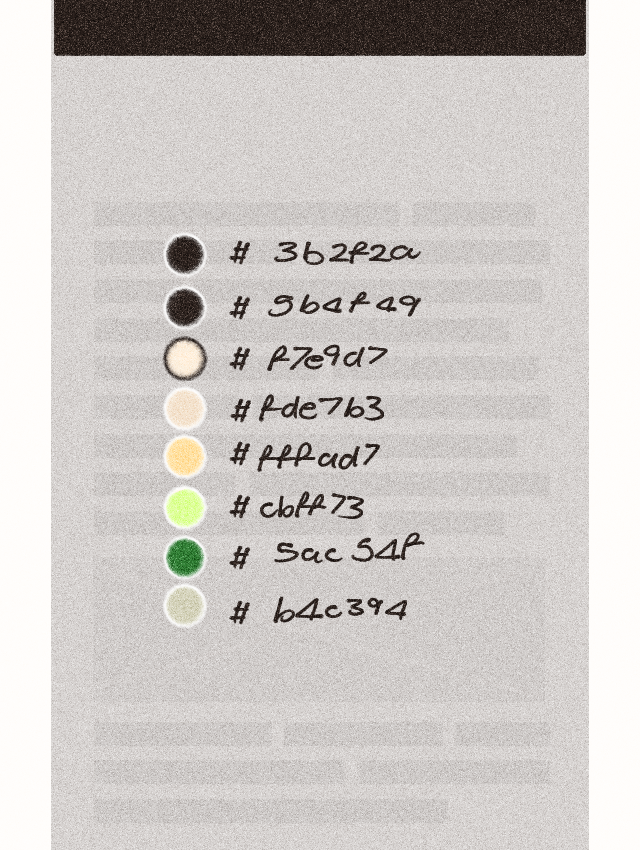 # 3b2f2a
# 5b4f49
# f7e9d7
# fde7b3
# fffad7
# cbff73
# 5ac54f
# b4c394